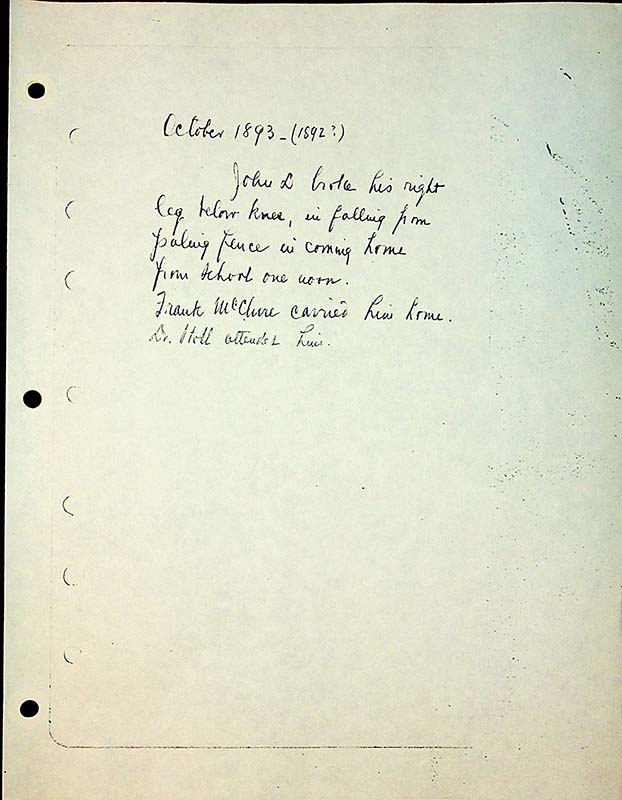 October 1893 - (1892?)
John L broke his right
leg below knee, in falling from
paling fence in coming home
from school one noon.
Frank McClure carried him home.
Dr. Holl attended him.